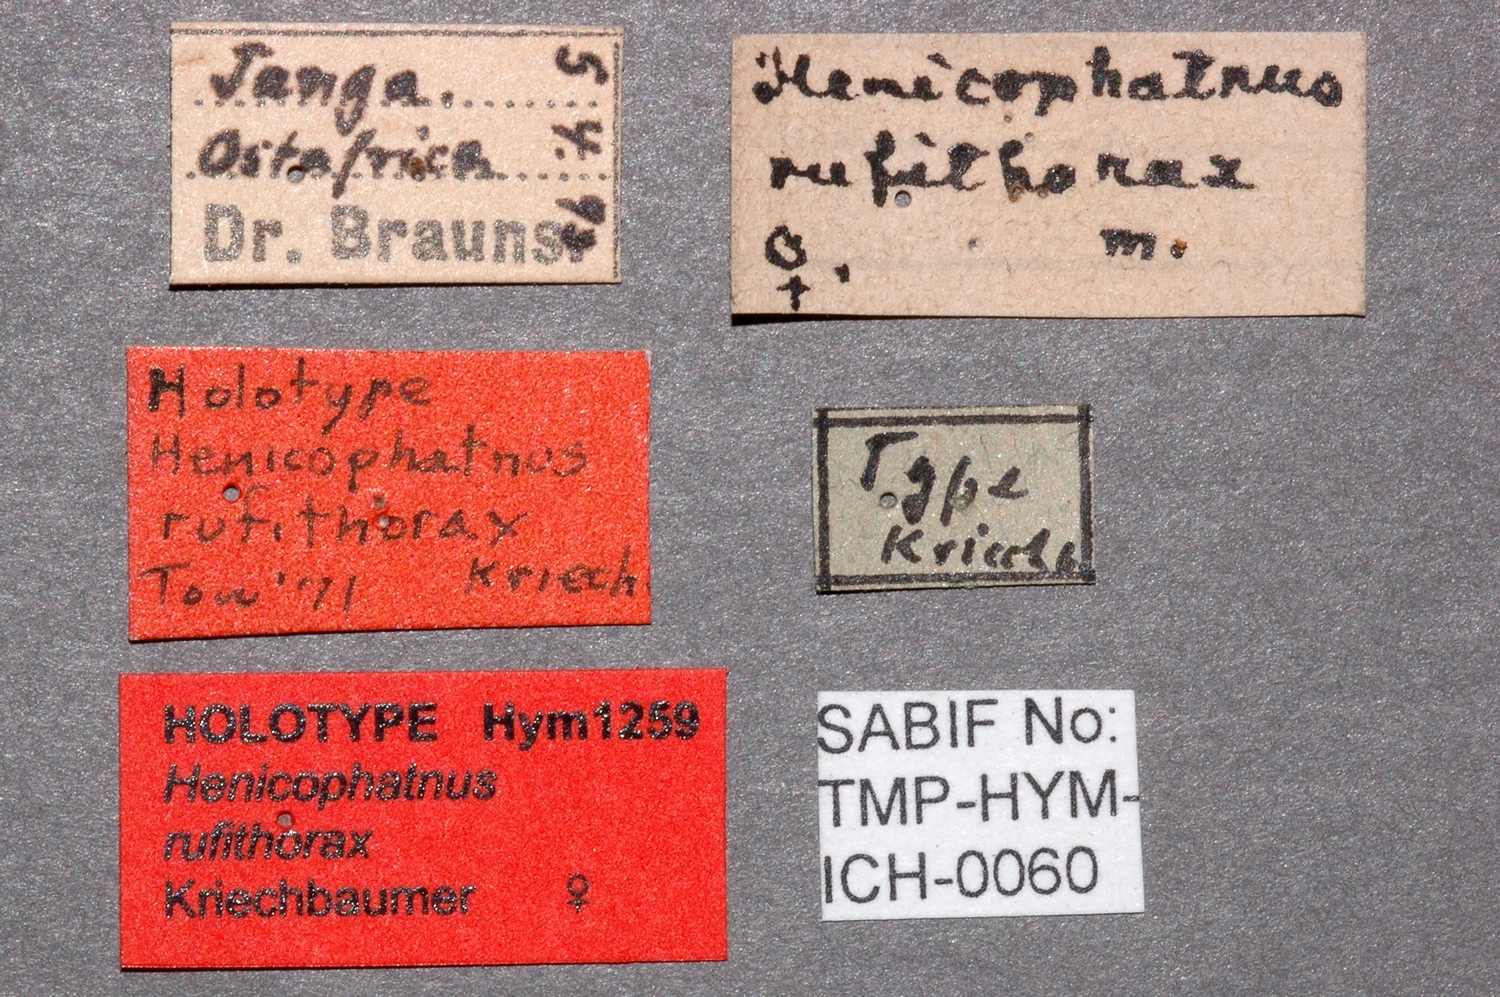 Tanga.
Ostafrica
Dr. Brauns.
5
4.
Henicophatnus
rufithorax
♀. m.
Holotype
Henicophatnus
rufithorax
Tow '71 Kriech.
Type
Kriechb.
HOLOTYPE Hym1259
Henicophatnus
rufithorax
Kriechbaumer ♀
SABIF No:
TMP-HYM-
ICH-0060